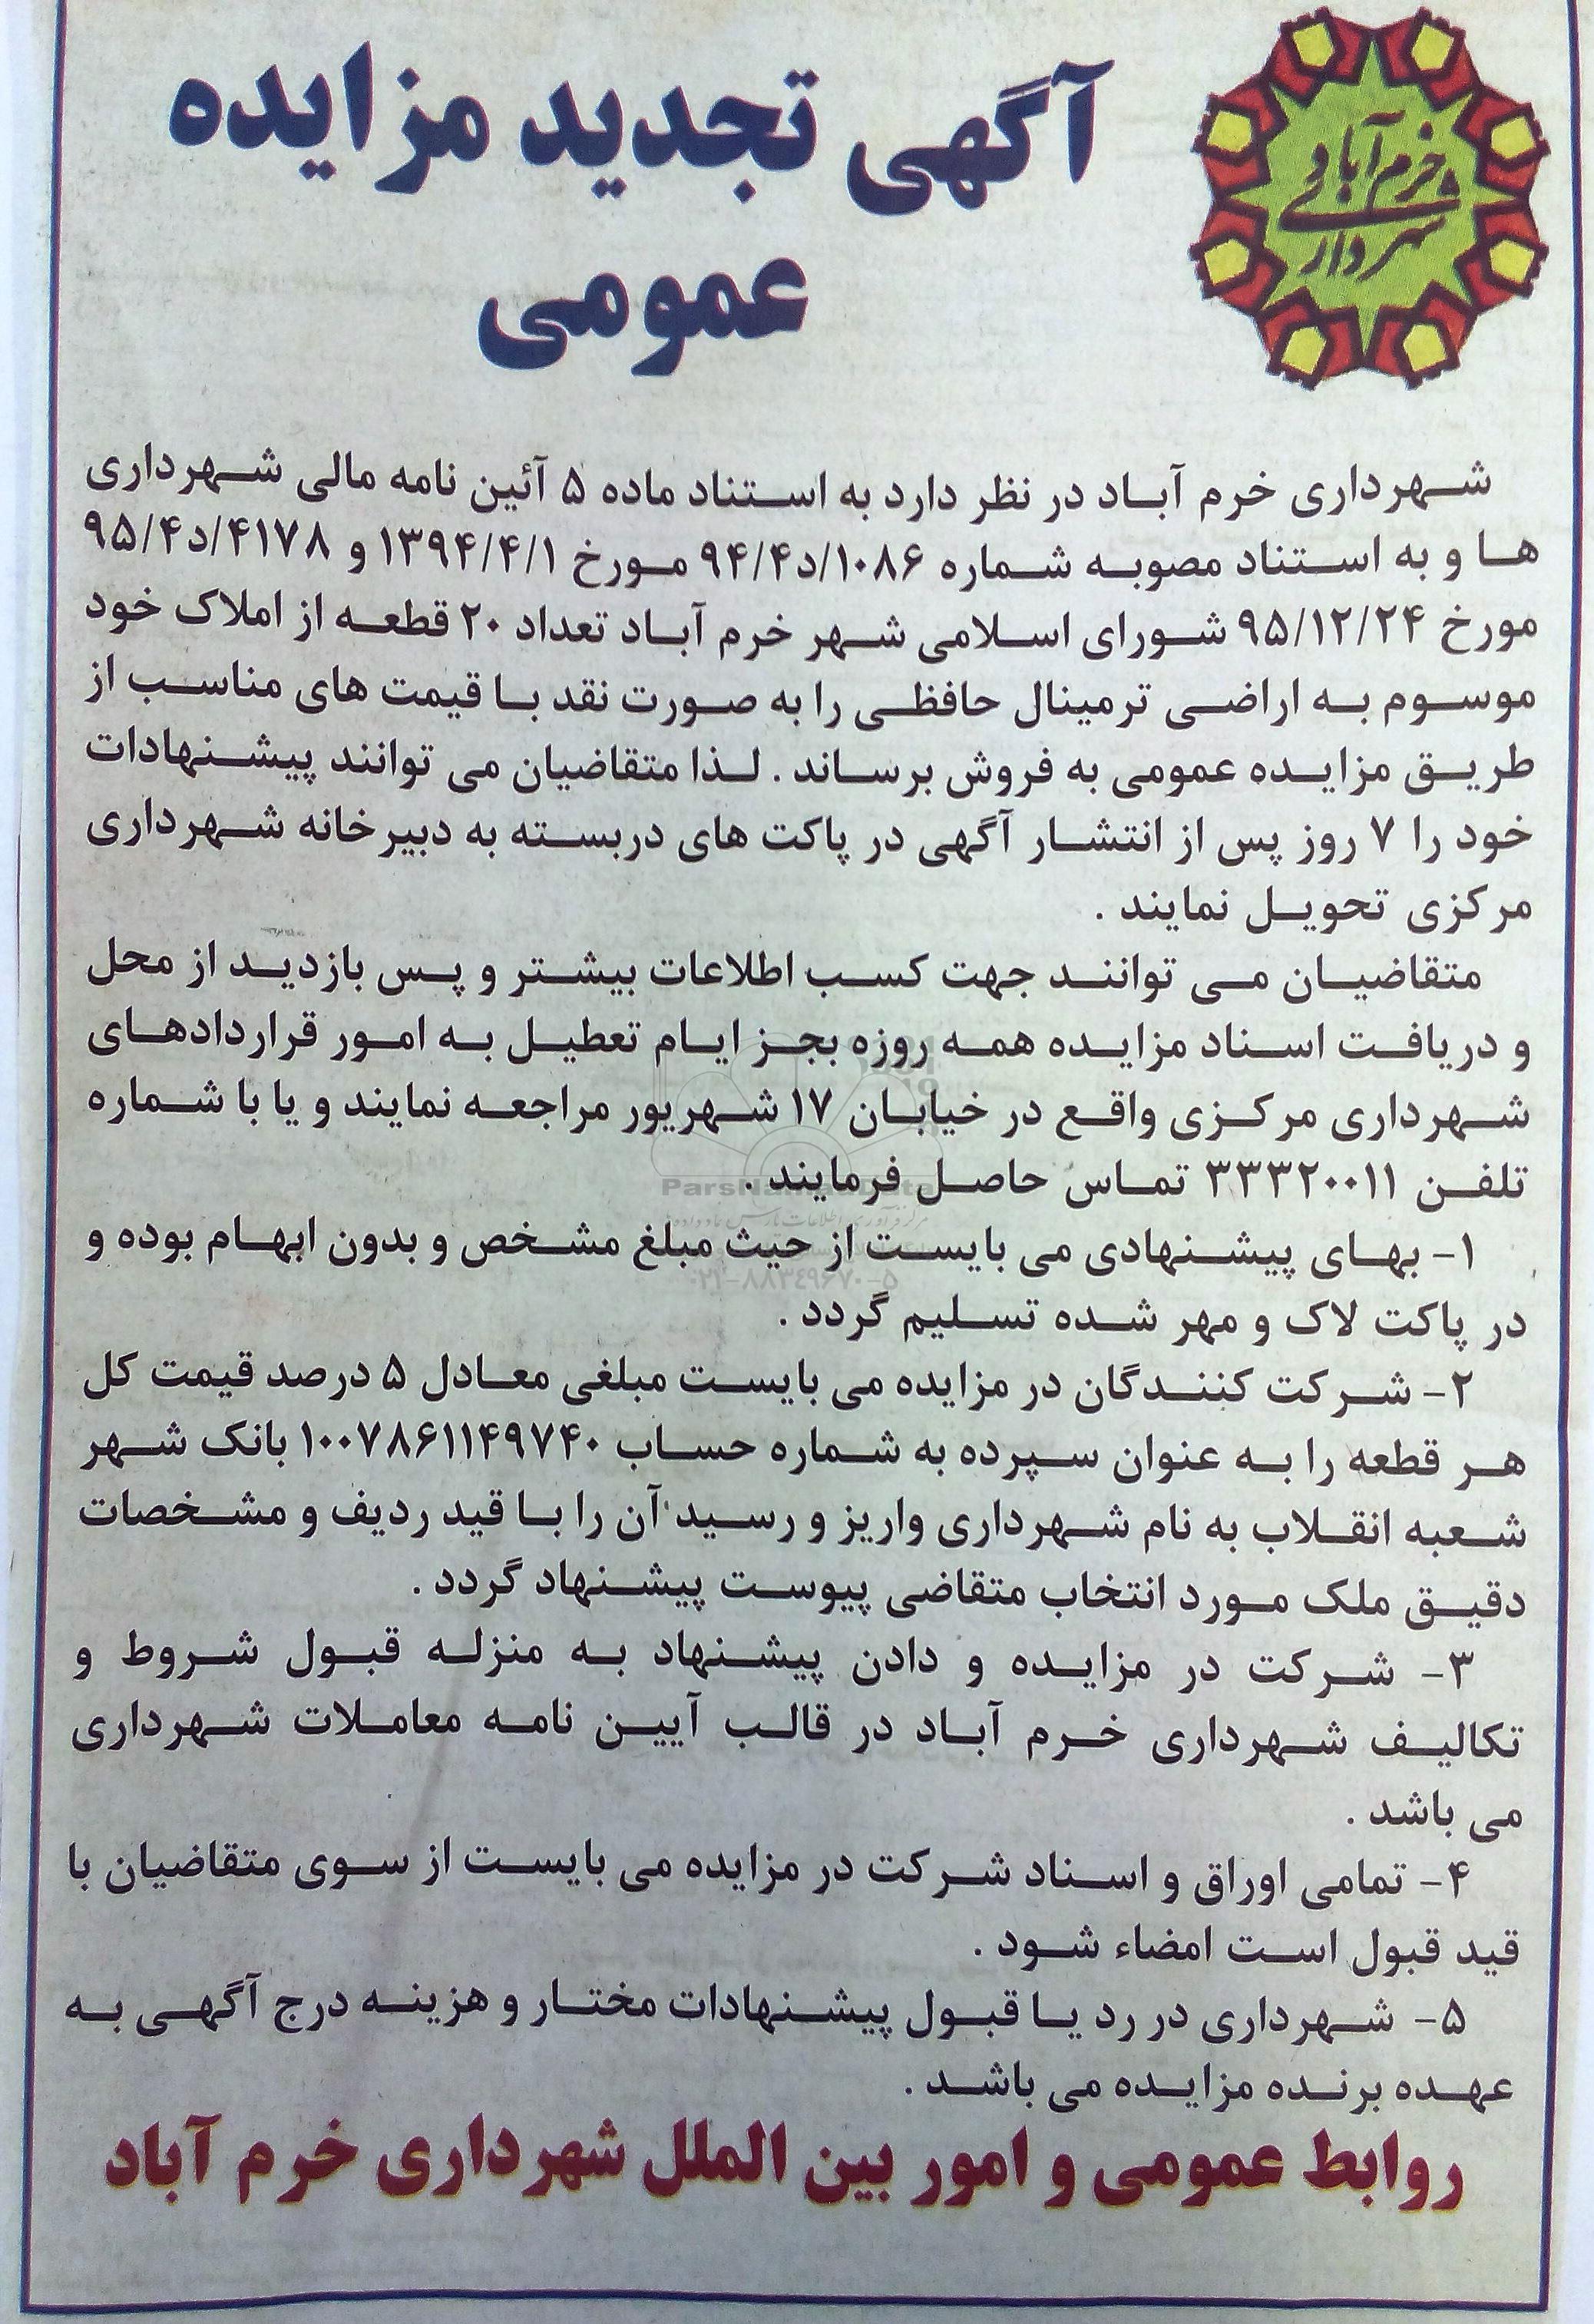 خرم آباد
شهرداری
آگهی تجدید مزایده
عمومی
شهرداری خرم آباد در نظر دارد به استناد ماده ۵ آئین نامه مالی شهرداری
ها و به استناد مصوبه شماره ۱۰۸۶/د۹۴/۴ مورخ ۱۳۹۴/۴/۱ و ۴۱۷۸/د۹۵/۴
مورخ ۹۵/۱۲/۲۴ شورای اسلامی شهر خرم آباد تعداد ۲۰ قطعه از املاک خود
موسوم به اراضی ترمینال حافظی را به صورت نقد با قیمت های مناسب از
طریق مزایده عمومی به فروش برساند . لذا متقاضیان می توانند پیشنهادات
خود را ۷ روز پس از انتشار آگهی در پاکت های دربسته به دبیرخانه شهرداری
مرکزی تحویل نمایند .
متقاضیان می توانند جهت کسب اطلاعات بیشتر و پس بازدید از محل
و دریافت اسناد مزایده همه روزه بجز ایام تعطیل به امور قراردادهای
شهرداری مرکزی واقع در خیابان ۱۷ شهریور مراجعه نمایند و یا با شماره
تلفن ۳۳۳۲۰۰۱۱ تماس حاصل فرمایند .
ParsNamadData
مرکز فرآوری اطلاعات پارس نماد داده ها
۱- بهای پیشنهادی می بایست از حیث مبلغ مشخص و بدون ابهام بوده و
۰۲۱-۸۸۳۴۹۶۷۰-۵
در پاکت لاک و مهر شده تسلیم گردد .
۲- شرکت کنندگان در مزایده می بایست مبلغی معادل ۵ درصد قیمت کل
هر قطعه را به عنوان سپرده به شماره حساب ۱۰۰۷۸۶۱۱۴۹۷۴۰ بانک شهر
شعبه انقلاب به نام شهرداری واریز و رسید آن را با قید ردیف و مشخصات
دقیق ملک مورد انتخاب متقاضی پیوست پیشنهاد گردد .
۳- شرکت در مزایده و دادن پیشنهاد به منزله قبول شروط و
تکالیف شهرداری خرم آباد در قالب آیین نامه معاملات شهرداری
می باشد .
۴- تمامی اوراق و اسناد شرکت در مزایده می بایست از سوی متقاضیان با
قید قبول است امضاء شود .
۵- شهرداری در رد یا قبول پیشنهادات مختار و هزینه درج آگهی به
عهده برنده مزایده می باشد .
روابط عمومی و امور بین الملل شهرداری خرم آباد